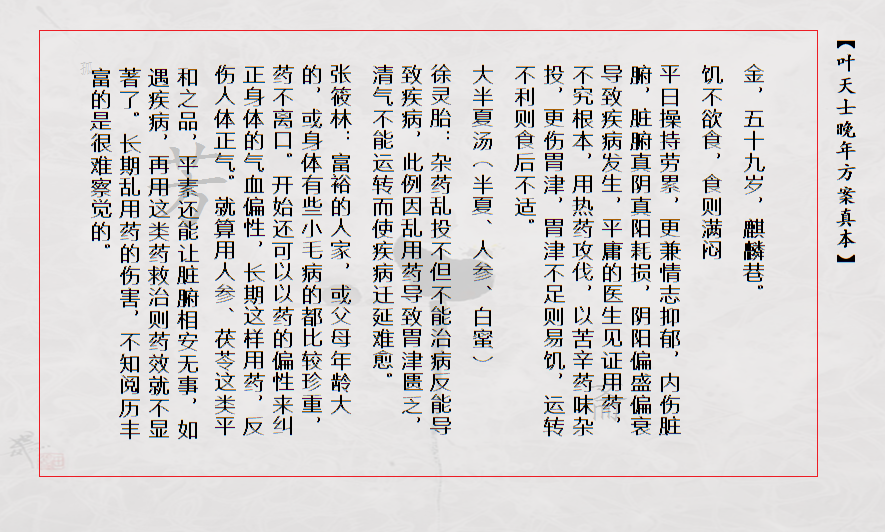 【叶天士晚年方案真本】
金，五十九岁，麒麟巷。
饥不欲食，食则满闷
平日操持劳累，更兼情志抑郁，内伤脏
腑，脏腑真阴真阳耗损，阴阳偏盛偏衰
导致疾病发生，平庸的医生见证用药，
不究根本，用热药攻伐，以苦辛药味杂
投，更伤胃津，胃津不足则易饥，运转
不利则食后不适。
大半夏汤（半夏、人参、白蜜）
徐灵胎：杂药乱投不但不能治病反能导
致疾病，此例因乱用药导致胃津匮乏，
清气不能运转而使疾病迁延难愈。
张筱林：富裕的人家，或父母年龄大
的，或身体有些小毛病的都比较珍重，
药不离口。开始还可以以药的偏性来纠
正身体的气血偏性，长期这样用药，反
伤人体正气。就算用人参、茯苓这类平
和之品，平素还能让脏腑相安无事，如
遇疾病，再用这类药救治则药效就不显
著了。长期乱用药的伤害，不知阅历丰
富的是很难察觉的。
芳